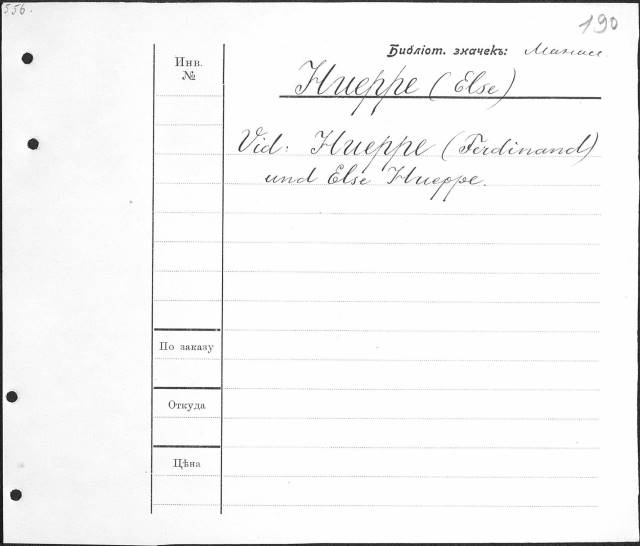 556.
190
Библіот. значекъ:
Инв.
№
Hueppe (Else)
Vid: Hueppe (Ferdinand)
und Else Hueppe.
По заказу
Откуда
Цѣна